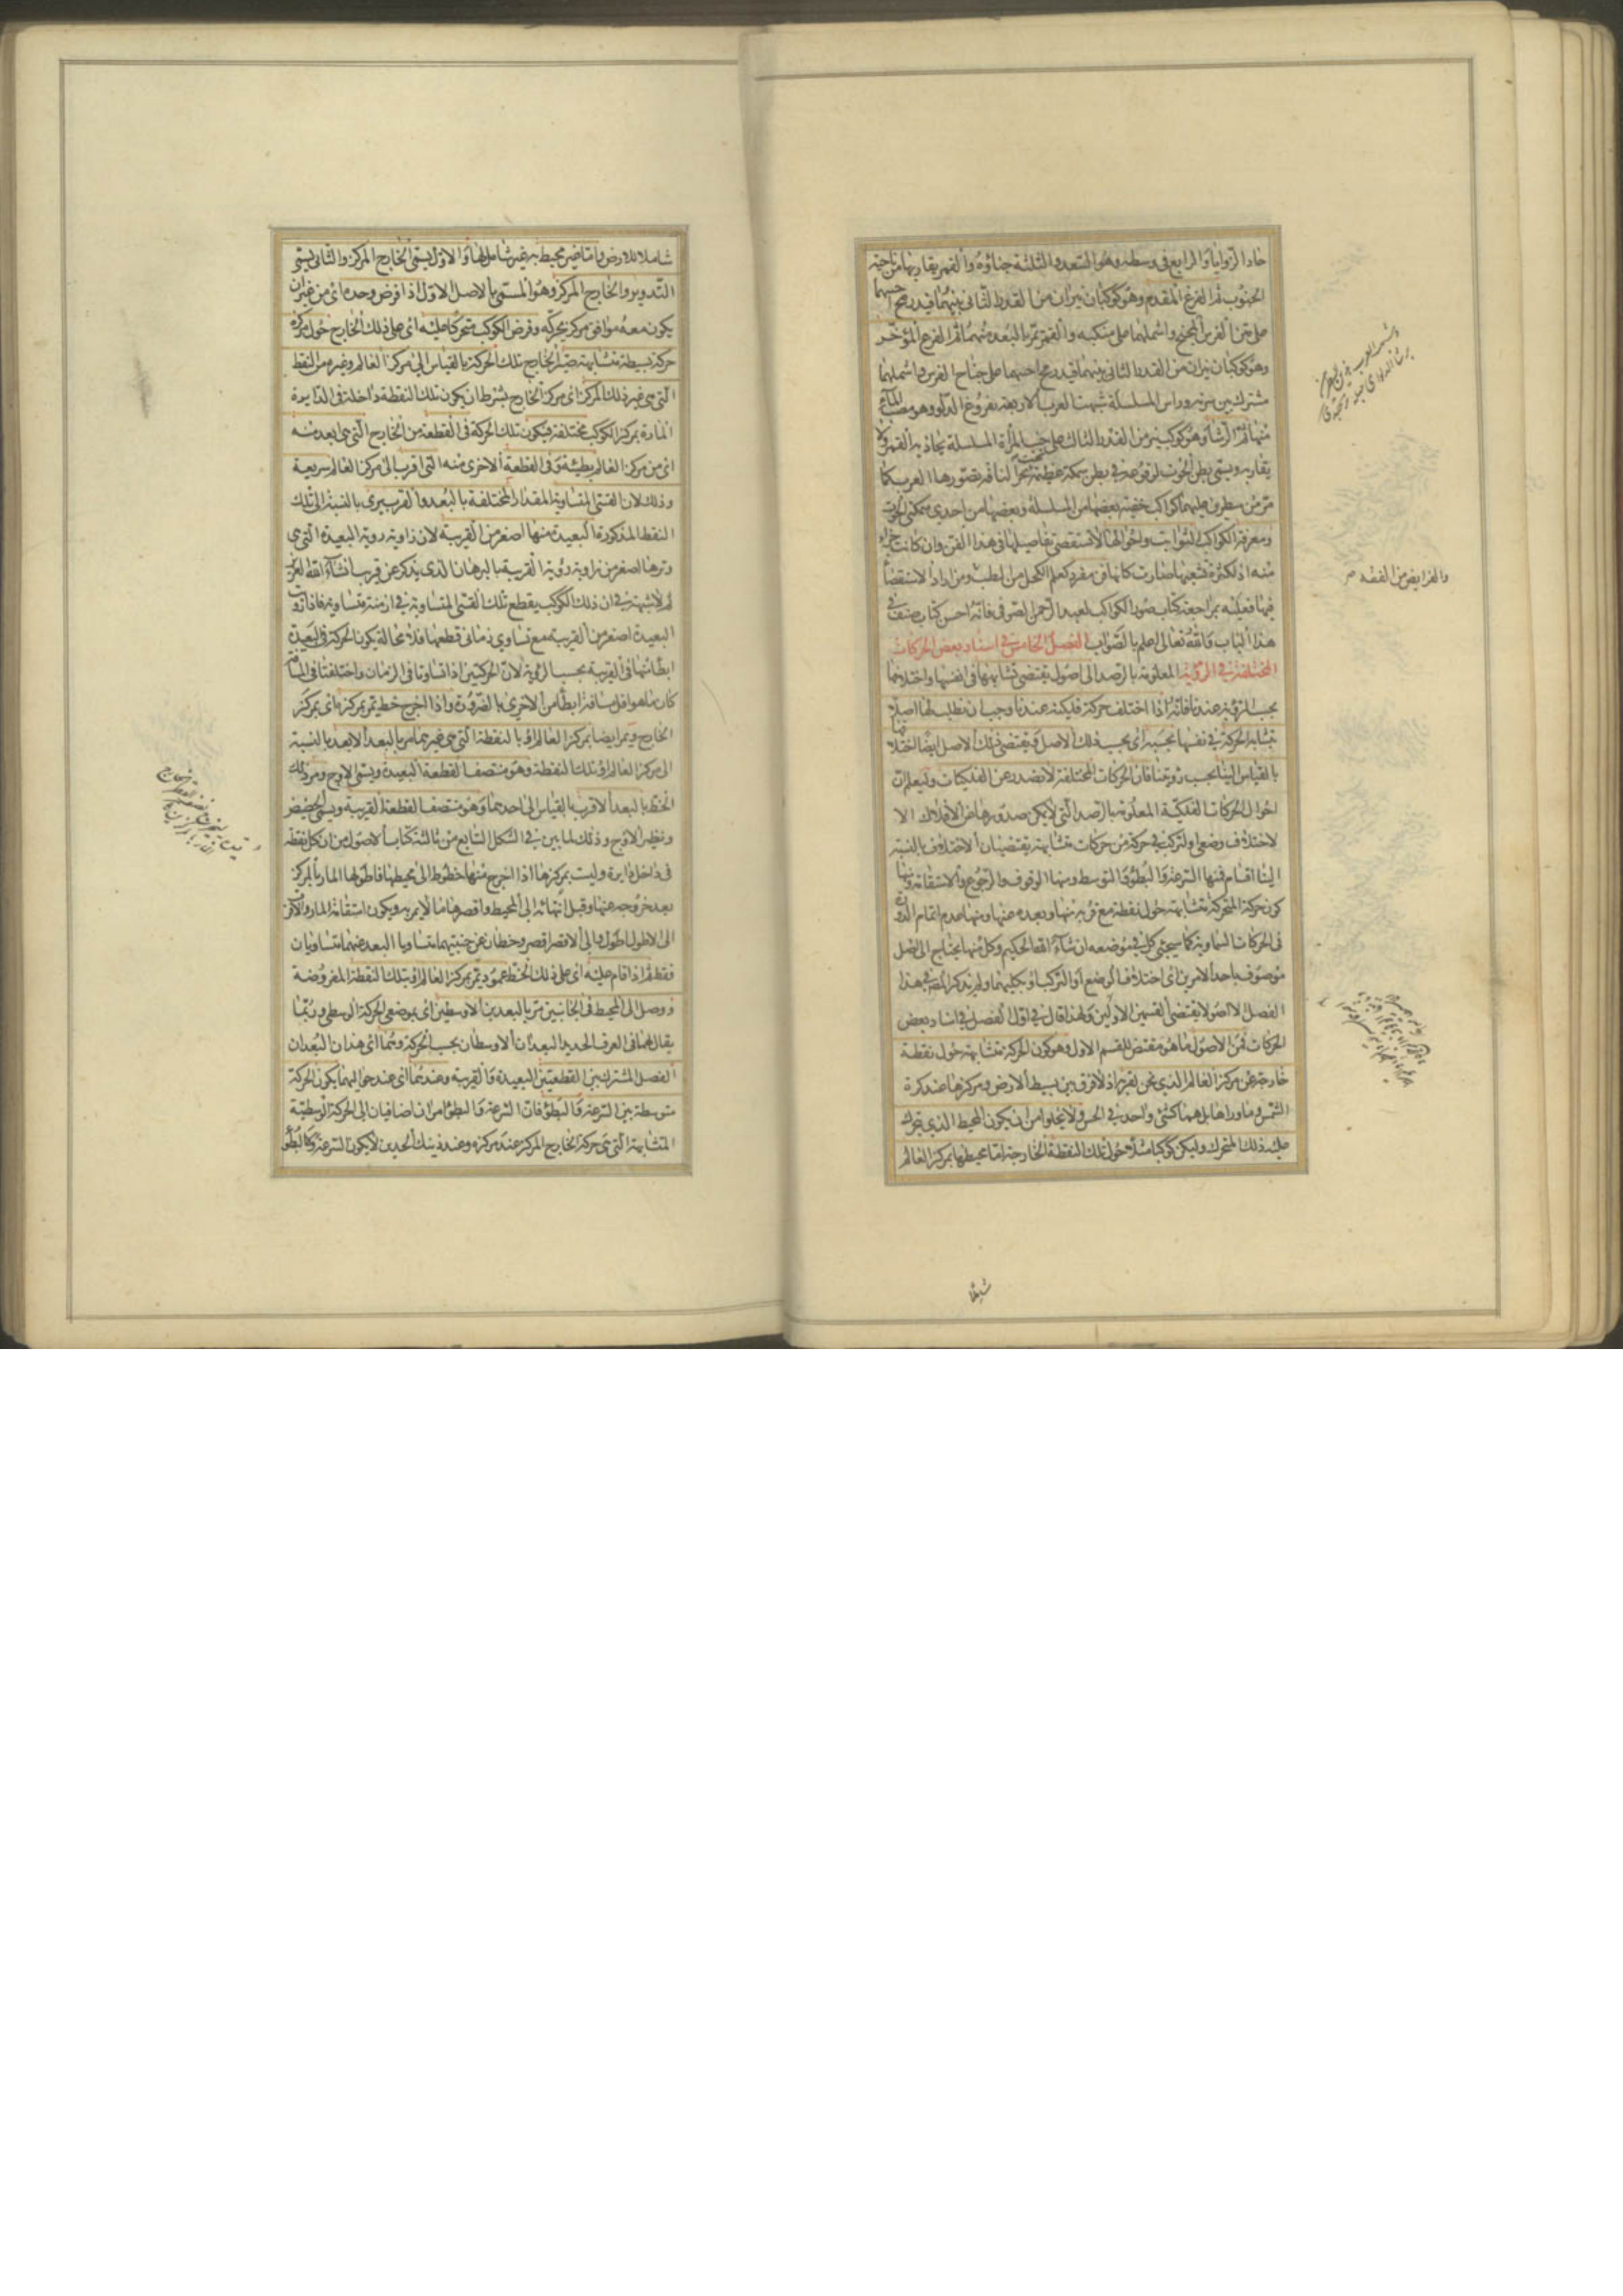 حاد الزوايا والرابع في وسطه وهو السعد والثلثة خباؤه والقمر يقاربها من ناحية
الجنوب ثم الفرغ المقدم وهو كوكبان نيران من القدر الثاني بينهما قيد رمح
على متن الفرس المجنح واشملهما على منكبه والقمر يمر بالبعد منهما ثم الفرغ المؤخر
وهو كوكبان نيران من القدر الثاني بينهما قيد رمح احدهما على جناح الفرس واشملهما
مشترك بين سرته وراس المسلسلة شبهت العرب الاربعة بفروغ الدلو وهو مصب الماء
منها ثم الرشا وهو كوكب نير من القدر الثالث على جنب المرأة المسلسلة يحاذيه القمر ولا
يقاربه ويسمى بطن الحوت لوقوعه في بطن سمكة عظيمة تحت نحر الناقة بتصورها العرب كما
من سطرين عليهما كواكب خفية بعضها من المسلسلة وبعضها من احدى سمكتي الحوت
ومعرفة الكواكب الثوابت واحوالها لا تستقصى تفاصيلها في هذا الفن وان كانت جزءا
منه اذ لكثرة تشعبها صارت كانها فن مفرد كعلم الكحل من الطب ومن اراد الاستقصاء
فيها فعليه بمراجعة كتاب صور الكواكب لعبد الرحمن الصوفي فانه احسن كتاب صنف في
هذا الباب والله تعالى اعلم بالصواب الفصل الخامس في اسناد بعض الحركات
المختلفة في الرؤية المعلومة بالرصد الى اصول يقتضي تشابهها في انفسها واختلافها
بحسب الرؤية عندنا فانه اذا اختلف حركة فلكية عندنا وجب ان نطلب لها اصلا
يتشابه الحركة في نفسها بحسبه اى بحسب ذلك الاصل ويقتضي ذلك الاصل ايضا اختلافها
بالقياس الينا بحسب رؤيتنا فان الحركات المختلفة لا تصدر عن الفلكيات وليعلم ان
احوال الحركات الفلكية المعلومة بالرصد التي لا يمكن صدورها من الافلاك الا
لاختلاف وضعي ولتركب في حركة من حركات متشابهة يقتضيان الاختلاف بالنسبة
الينا اقسام فمنها السرعة والبطؤ والتوسط ومنها الوقوف والرجوع والاستقامة ومنها
كون حركة المتحركة متشابهة حول نقطة مع قربه منها وبعده عنها ومنها عدم اتمام الدور
في الحركات السماوية كما سيجئ كل في موضعه ان شاء الله الحكيم وكل منها يحتاج الى اصل
موصوف باحد الامرين اى اختلاف الوضع او التركب او بكليهما ولم يذكر المص في هذا
الفصل الا اصولا يقتضي القسمين الاولين ولهذا قال في اول الفصل في اسناد بعض
الحركات فمن الاصول ما هو مقتض للقسم الاول وهو كون الحركة متشابهة حول نقطة
خارجة عن مركز العالم الذي نحن بقربه اذ لا فرق بين بسيط الارض ومركزها عند كرة
الشمس وما وراها بل هما كشئ واحد في الحس ولا يخلو امن ان يكون المحيط الذي يتحرك
عليه ذلك المتحرك وليكن كوكبا مثلا حول تلك النقطة الخارجة اما محيطها بمركز العالم
والفرايض من الفقه صح
شاملا للارض واما غير محيط به غير شامل لها والاول يسمى الخارج المركز والثاني يسمى
التدوير والخارج المركز وهو المسمى بالاصل الاول اذا فرض وحده اى من غير ان
يكون معه موافق مركز يحركه وفرض الكوكب متحركا عليه اى على ذلك الخارج حول مركزه
حركة بسيطة متشابهة صير الخارج تلك الحركة بالقياس الى مركز العالم وغيره من النقط
التي هي غير ذلك المركز اى مركز الخارج بشرط ان يكون تلك النقطة داخلة في الدايرة
المارة بمركز الكوكب مختلفة فيكون تلك الحركة في القطعة من الخارج التي هي ابعد منه
اى من مركز العالم بطيئة وفي القطعة الاخرى منه التي اقرب الى مركز العالم سريعة
وذلك لان القسى المتساوية المقدار المختلفة بالبعد والقرب يرى بالنسبة الى تلك
النقط المذكورة البعيدة منها اصغر من القريبة لان زاوية رؤية البعيدة التي هي
وترها اصغر من زاوية رؤية القريبة بالبرهان الذى يذكر عن قريب ان شاء الله العزيز
ثم لا شبهة في ان ذلك الكوكب يقطع تلك القسى المتساوية في ازمنة متساوية فاذا رؤيت
البعيدة اصغر من القريبة مع تساوى زماني قطعها فلا محالة يكون الحركة في البعيدة
ابطا منها في القريبة بحسب الرؤية لان الحركتين اذا تساوتا في الزمان واختلفتا في المسافة
كان ما هو اقل مسافة ابطأ من الاخرى بالضرورة واذا اخرج خط يمر بمركزه اى بمركز
الخارج ويمر ايضا بمركز العالم او بالنقطة التي هي غيرهما مر بالبعد الابعد بالنسبة
الى مركز العالم او تلك النقطة وهو منتصف القطعة البعيدة ويسمى الاوج ومر ذلك
الخط بالبعد الاقرب بالقياس الى احدهما وهو منتصف القطعة القريبة ويسمى الحضيض
ونظير الاوج وذلك لما بين في الشكل السابع من ثالثة كتاب الاصول من ان كل نقطة
في داخل دايرة وليست بمركزها اذا اخرج منها خطوط الى محيطها فاطولها المار بالمركز
بعد خروجه عنها وقبل انتهائه الى المحيط واقصرها ما لا يمر به ويكون استقامة المار والاقرب
الى الاطول اطول والى الاقصر اقصر وخطان عن جنبيتهما متساويا البعد عنهما متساويان
فقط ثم اذا قام عليه اى على ذلك الخط عمود يمر بمركز العالم او بتلك النقطة المفروضة
ووصل الى المحيط في الجانبين مر بالبعدين الاوسطين اى بموضعي الحركة الوسطى وربما
يقال لهما في العرف الجديد البعدان الاوسطان بحسب الحركة وهما اى هذان البعدان
الفصل المشترك بين القطعتين البعيدة والقريبة وعندهما اى عند حواليهما يكون الحركة
متوسطة بين السرعة والبطؤ فان السرعة والبطؤ امران اضافيان الى الحركة الوسطية
المتشابهة التي هي حركة الخارج المركز عند مركزه وعند ذينك الحدين لا يكون السرعة والبطؤ